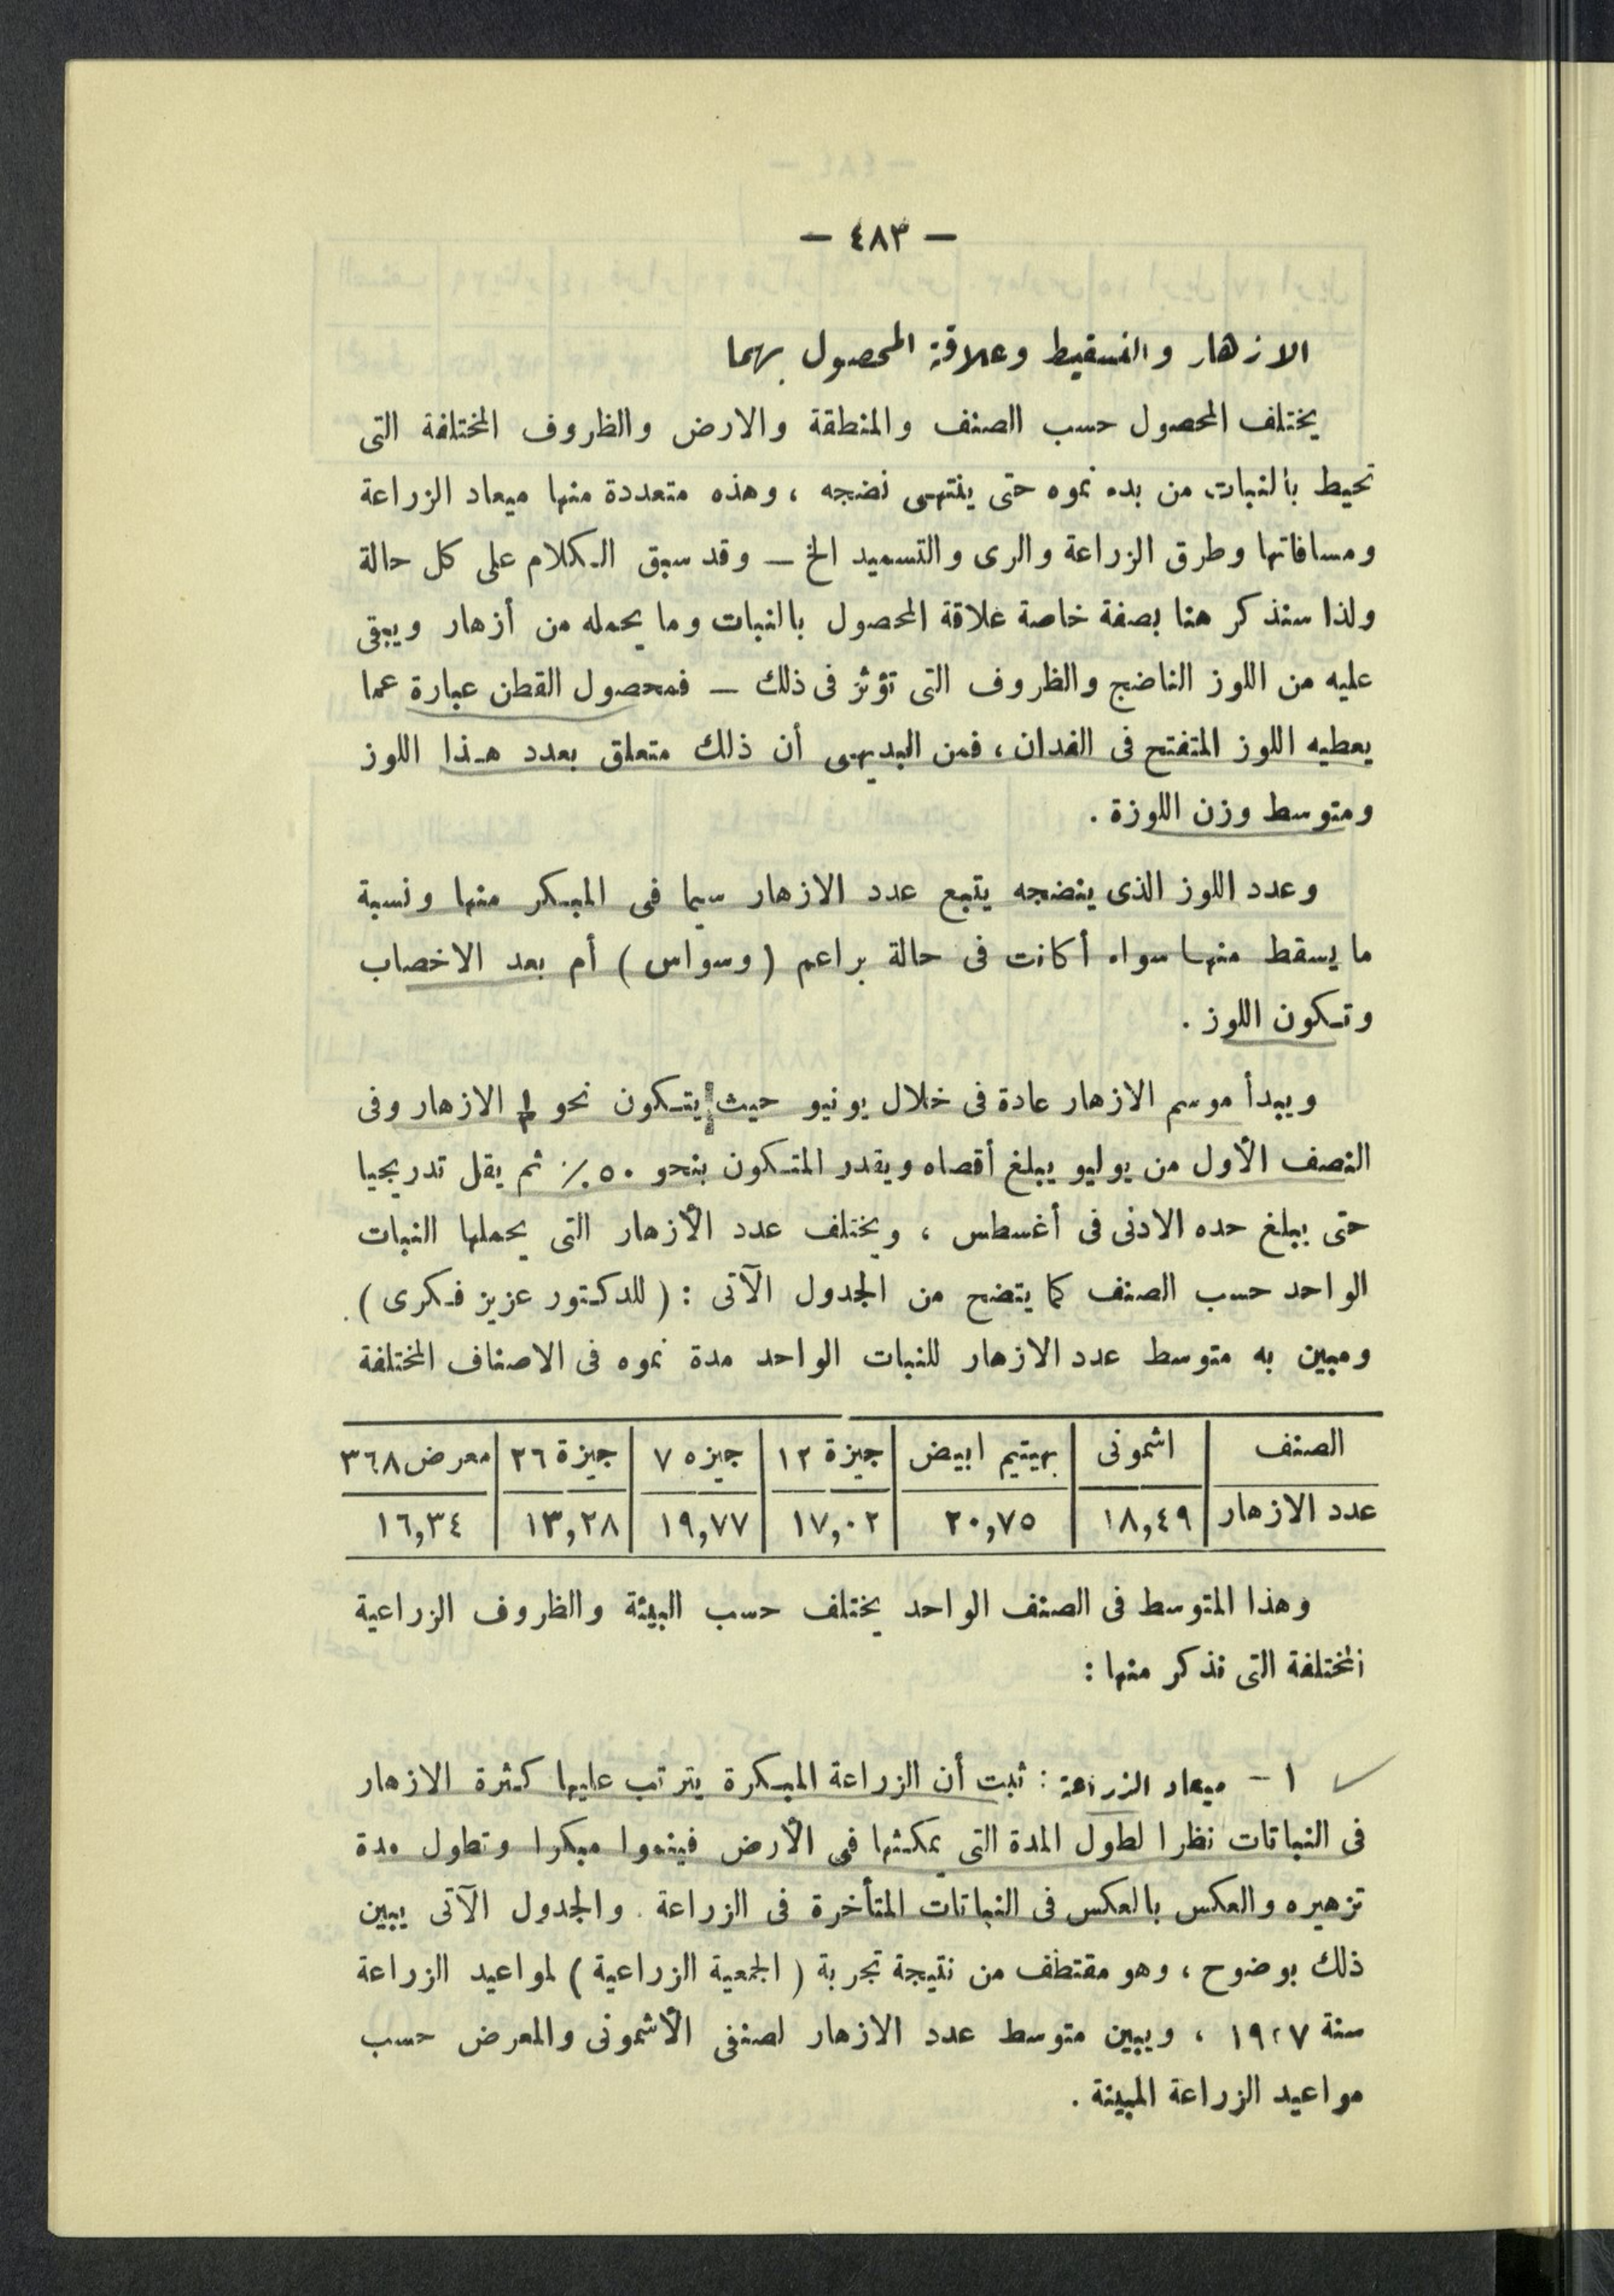 — ٤٨٣ —
الازهار والتسقيط وعلاقة المحصول بهما
يختلف المحصول حسب الصنف والمنطقة والارض والظروف المختلفة التى
تحيط بالنبات من بدء نموه حتى ينتهى نضجه ، وهذه متعددة منها ميعاد الزراعة
ومسافاتها وطرق الزراعة والرى والتسميد الخ — وقد سبق الكلام على كل حالة
ولذا سنذكر هنا بصفة خاصة علاقة المحصول بالنبات وما يحمله من أزهار ويبقى
عليه من اللوز الناضج والظروف التى تؤثر فى ذلك — فمحصول القطن عبارة عما
يعطيه اللوز المتفتح فى الفدان ، فمن البديهى أن ذلك متعلق بعدد هذا اللوز
ومتوسط وزن اللوزة .
وعدد اللوز الذى ينضجه يتبع عدد الازهار سيما فى المبكر منها ونسبة
ما يسقط منها سواء أكانت فى حالة براعم ( وسواس ) أم بعد الاخصاب
وتكون اللوز .
ويبدأ موسم الازهار عادة فى خلال يونيو حيث يتكون نحو الازهار وفى
النصف الأول من يوليو يبلغ أقصاه ويقدر المتكون بنحو ٥٠ ٪ ثم يقل تدريجيا
حتى يبلغ حده الادنى فى أغسطس ، ويختلف عدد الأزهار التى يحملها النبات
الواحد حسب الصنف كما يتضح من الجدول الآتى : ( للدكتور عزيز فكرى ) .
ومبين به متوسط عدد الازهار للنبات الواحد مدة نموه فى الاصناف المختلفة
الصنف اشمونى بهتيم ابيض جيزة ١٢ جيزه ٧ جيزة ٢٦ معرض ٣٦٨
عدد الازهار ١٨,٤٩ ٢٠,٧٥ ١٧,٠٢ ١٩,٧٧ ١٣,٢٨ ١٦,٣٤
وهذا المتوسط فى الصنف الواحد يختلف حسب البيئة والظروف الزراعية
المختلفة التى نذكر منها :
١ — ميعاد الزراعة : ثبت أن الزراعة المبكرة يترتب عليها كثرة الازهار
فى النباتات نظرا لطول المدة التى يمكثها فى الأرض فينموا مبكرا وتطول مدة
تزهيره والعكس بالعكس فى النباتات المتأخرة فى الزراعة . والجدول الآتى يبين
ذلك بوضوح ، وهو مقتطف من نتيجة تجربة ( الجمعية الزراعية ) لمواعيد الزراعة
سنة ١٩٢٧ ، ويبين متوسط عدد الازهار لصنفى الأشمونى والمعرض حسب
مواعيد الزراعة المبينة .